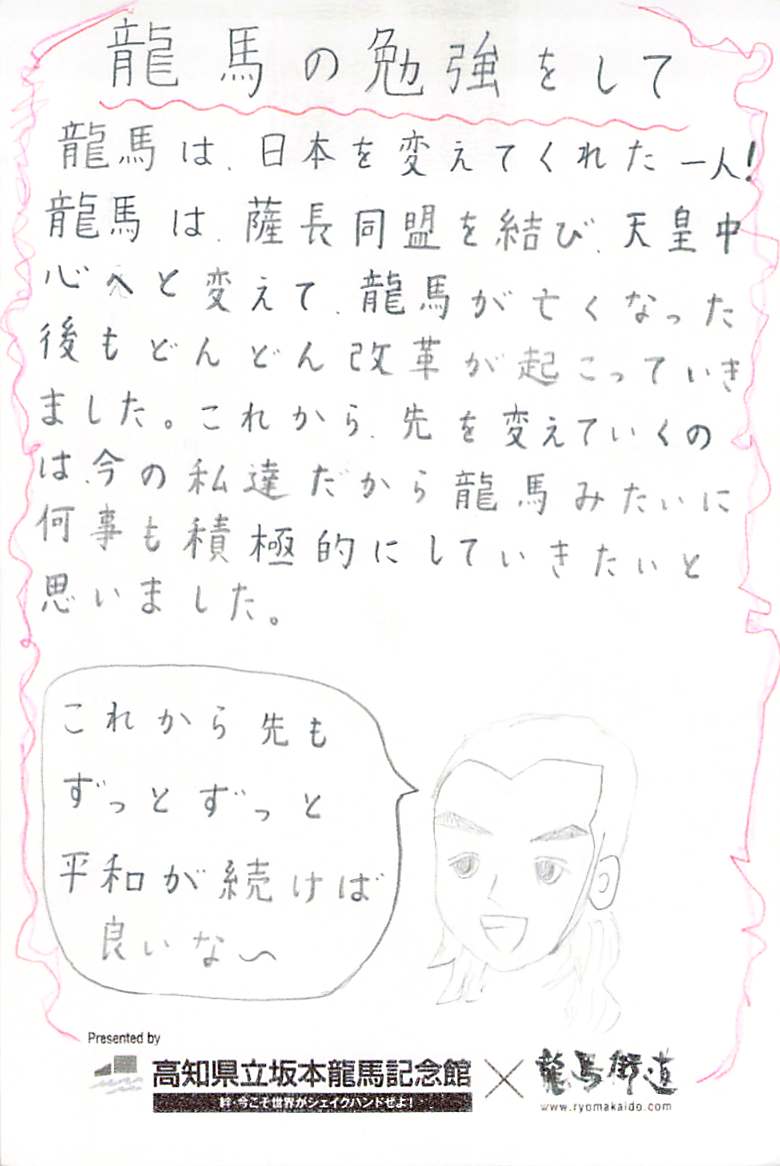 龍馬の勉強をして
龍馬は、日本を変えてくれた一人!
龍馬は、薩長同盟を結び、天皇中
心へと変えて、龍馬が亡くなった
後もどんどん改革が起こっていき
ました。これから、先を変えていくの
は、今の私達だから龍馬みたいに
何事も積極的にしていきたいと
思いました。
これから先も
ずっとずっと
平和が続けば
良いな〜
Presented by
高知県立坂本龍馬記念館 × 龍馬街道
絆・今こそ世界がシェイクハンドぜよ!
www.ryomakaido.com